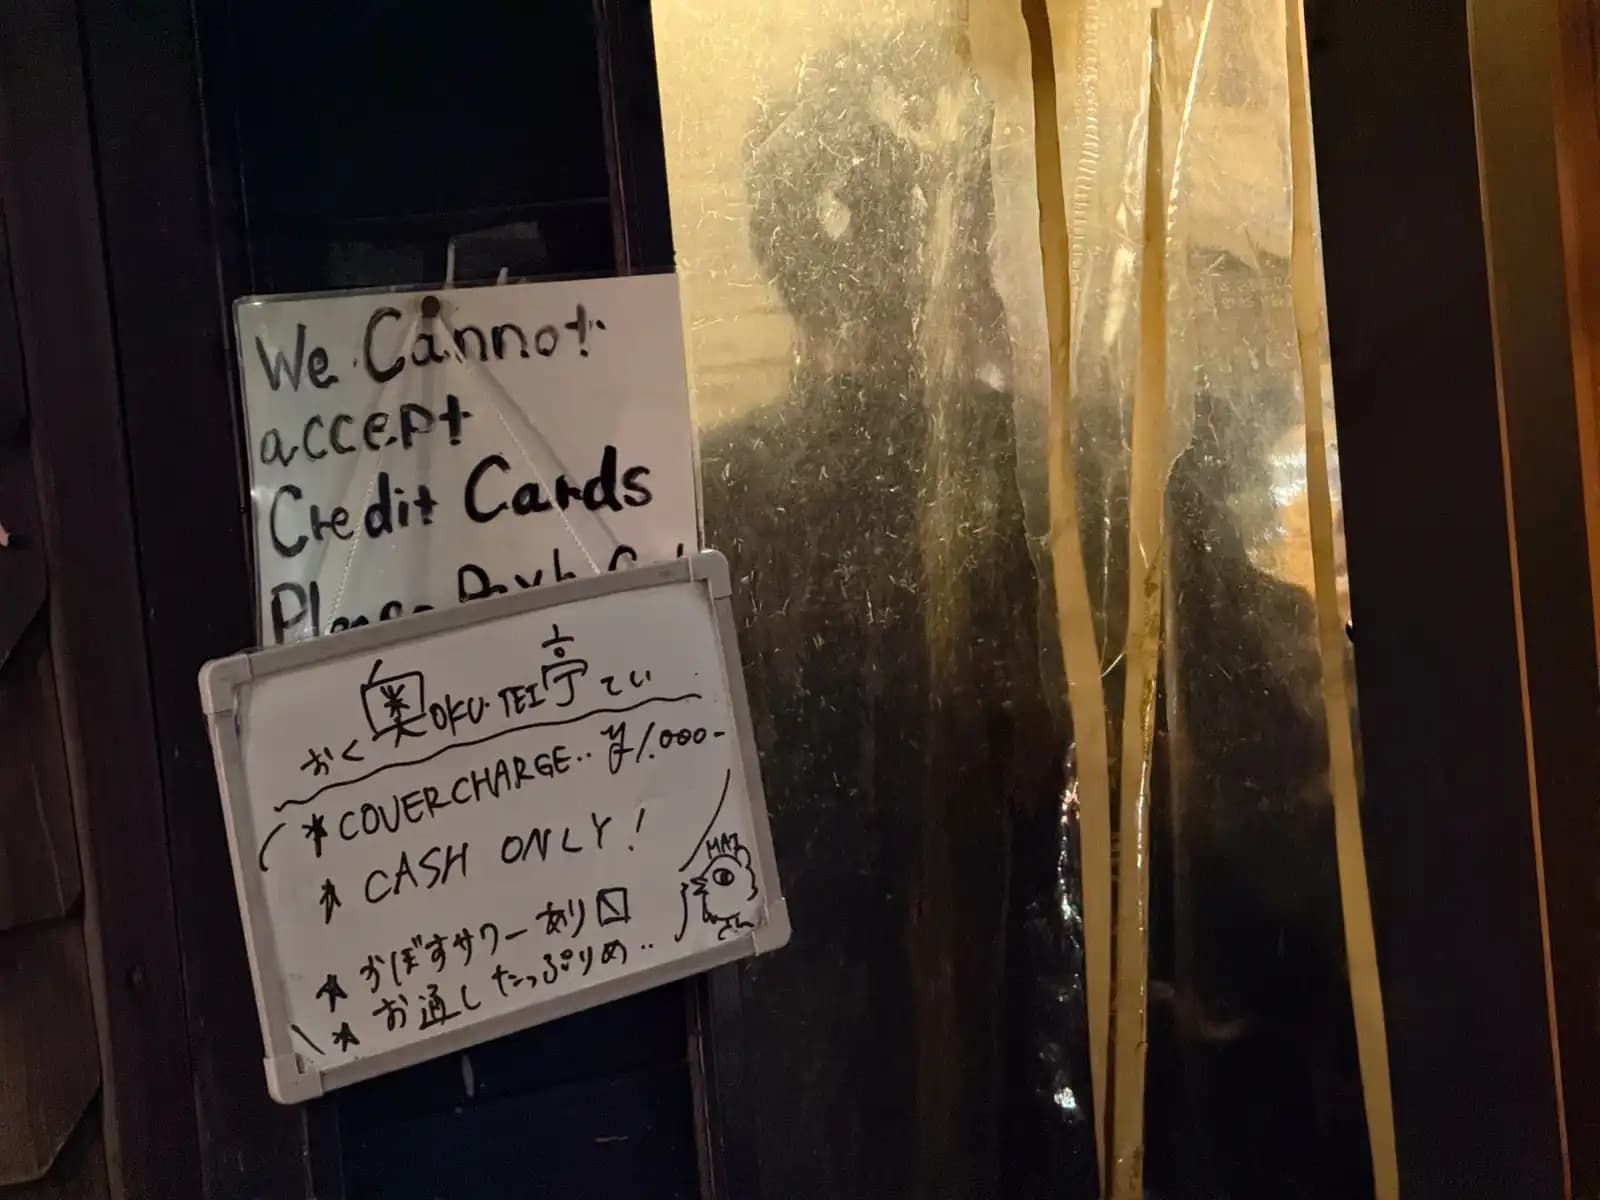 We Cannot
accept
Credit Cards
Please
奥 OKU・TEI 亭 てい
おく
★ COVERCHARGE.. ¥1.000-
★ CASH ONLY!
★ かぼすサワーあり
★ お通したっぷりめ..